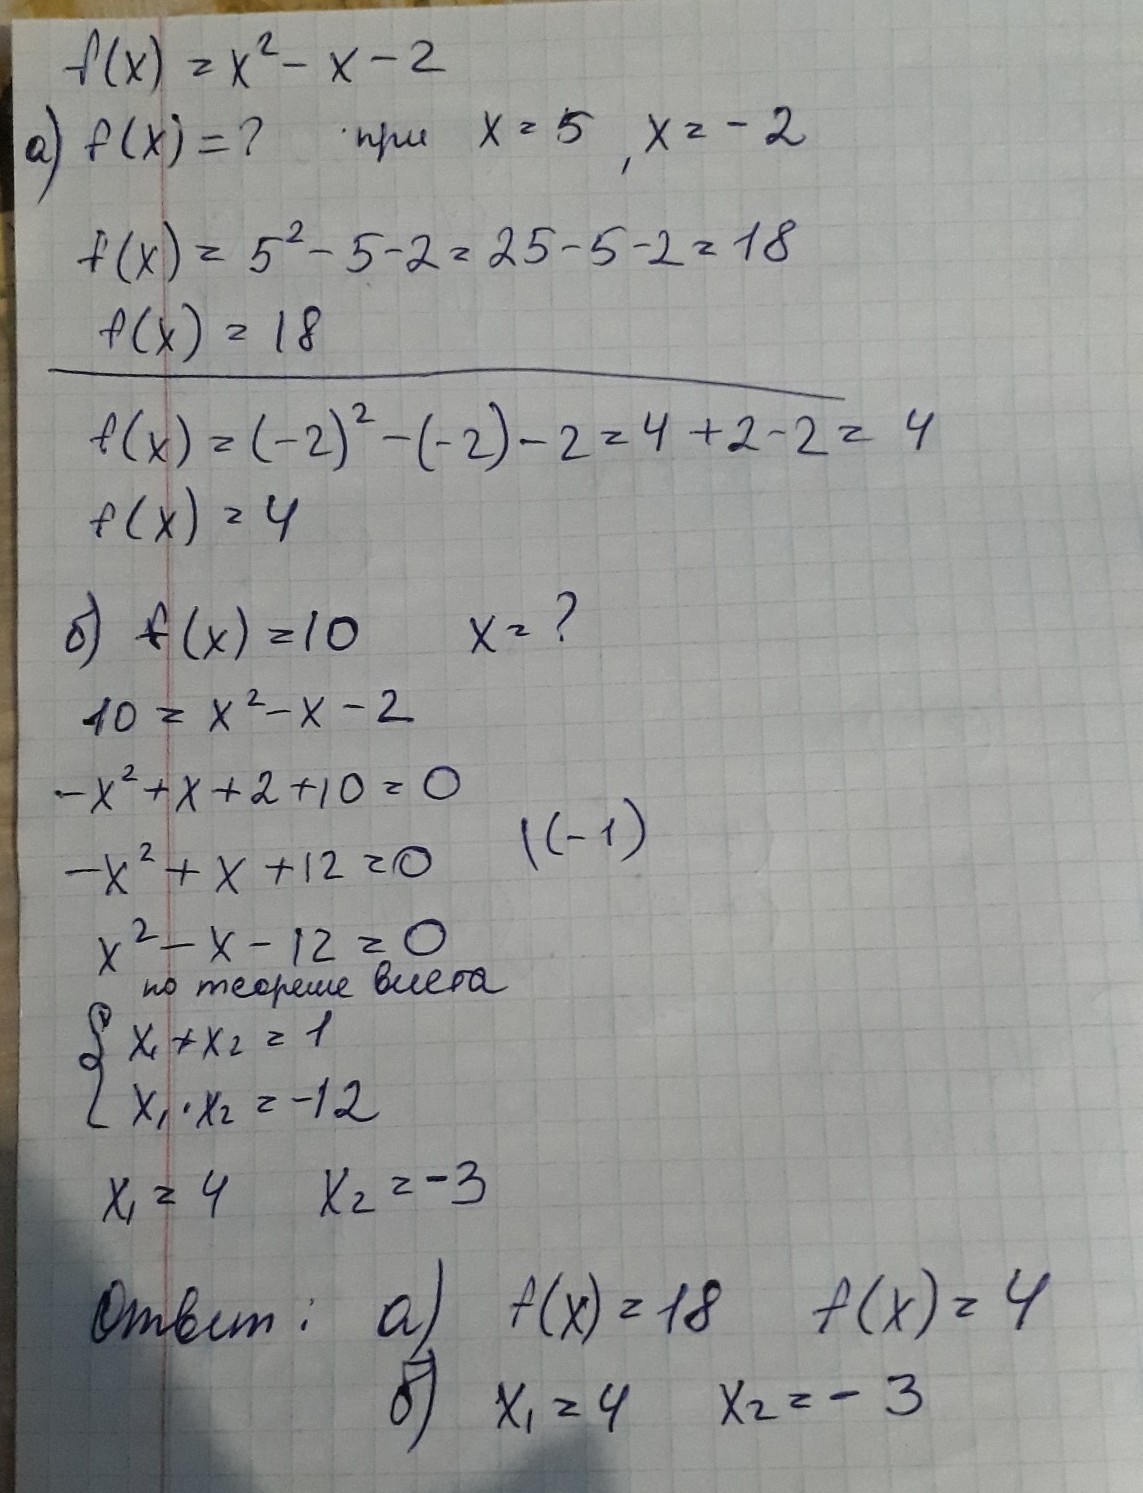 f(x) = x² - x - 2
а) f(x) = ? при x = 5, x = -2
f(x) = 5² - 5 - 2 = 25 - 5 - 2 = 18
f(x) = 18
f(x) = (-2)² - (-2) - 2 = 4 + 2 - 2 = 4
f(x) = 4
б) f(x) = 10 x = ?
10 = x² - x - 2
-x² + x + 2 + 10 = 0
-x² + x + 12 = 0 |(-1)
x² - x - 12 = 0
по теореме виета
{ x₁ + x₂ = 1
x₁ · x₂ = -12
x₁ = 4 x₂ = -3
Ответ: а) f(x) = 18 f(x) = 4
б) x₁ = 4 x₂ = -3